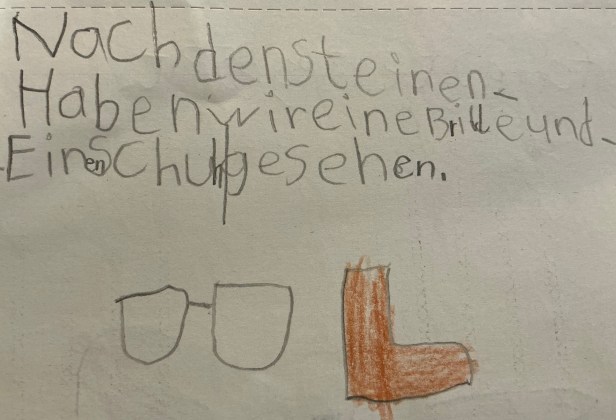 Nachdensteinen
Habenwireine Brille und
Einen Schuh gesehen.